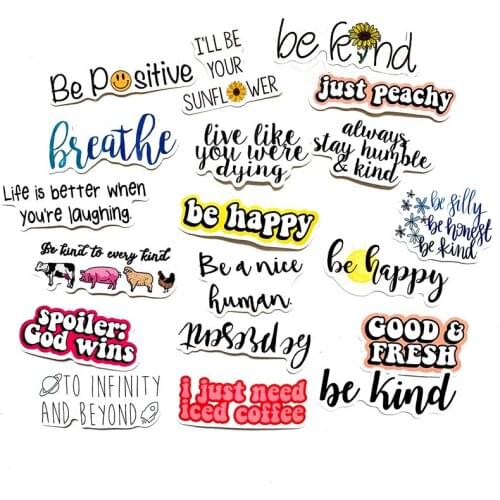 be kind
I'LL BE
YOUR
SUNFLOWER
Be Positive
just peachy
breathe
live like
you were
dying
always
stay humble
& kind
Life is better when
you're laughing.
be happy
be silly
be honest
be kind
Be kind to every kind
Be a nice
human.
be happy
spoiler:
God wins
GOOD &
FRESH
TO INFINITY
AND BEYOND
i just need
iced coffee
be kind